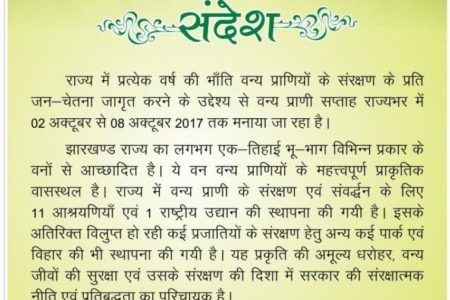 संदेश
राज्य में प्रत्येक वर्ष की भाँति वन्य प्राणियों के संरक्षण के प्रति
जन–चेतना जागृत करने के उद्देश्य से वन्य प्राणी सप्ताह राज्यभर में
02 अक्टूबर से 08 अक्टूबर 2017 तक मनाया जा रहा है।
झारखण्ड राज्य का लगभग एक–तिहाई भू–भाग विभिन्न प्रकार के
वनों से आच्छादित है। ये वन वन्य प्राणियों के महत्त्वपूर्ण प्राकृतिक
वासस्थल है। राज्य में वन्य प्राणी के संरक्षण एवं संवर्द्धन के लिए
11 आश्रयणियाँ एवं 1 राष्ट्रीय उद्यान की स्थापना की गयी है। इसके
अतिरिक्त विलुप्त हो रही कई प्रजातियों के संरक्षण हेतु अन्य कई पार्क एवं
विहार की भी स्थापना की गयी है। यह प्रकृति की अमूल्य धरोहर, वन्य
जीवों की सुरक्षा एवं उसके संरक्षण की दिशा में सरकार की संरक्षात्मक
नीति एवं प्रतिबद्धता का परिचायक है।